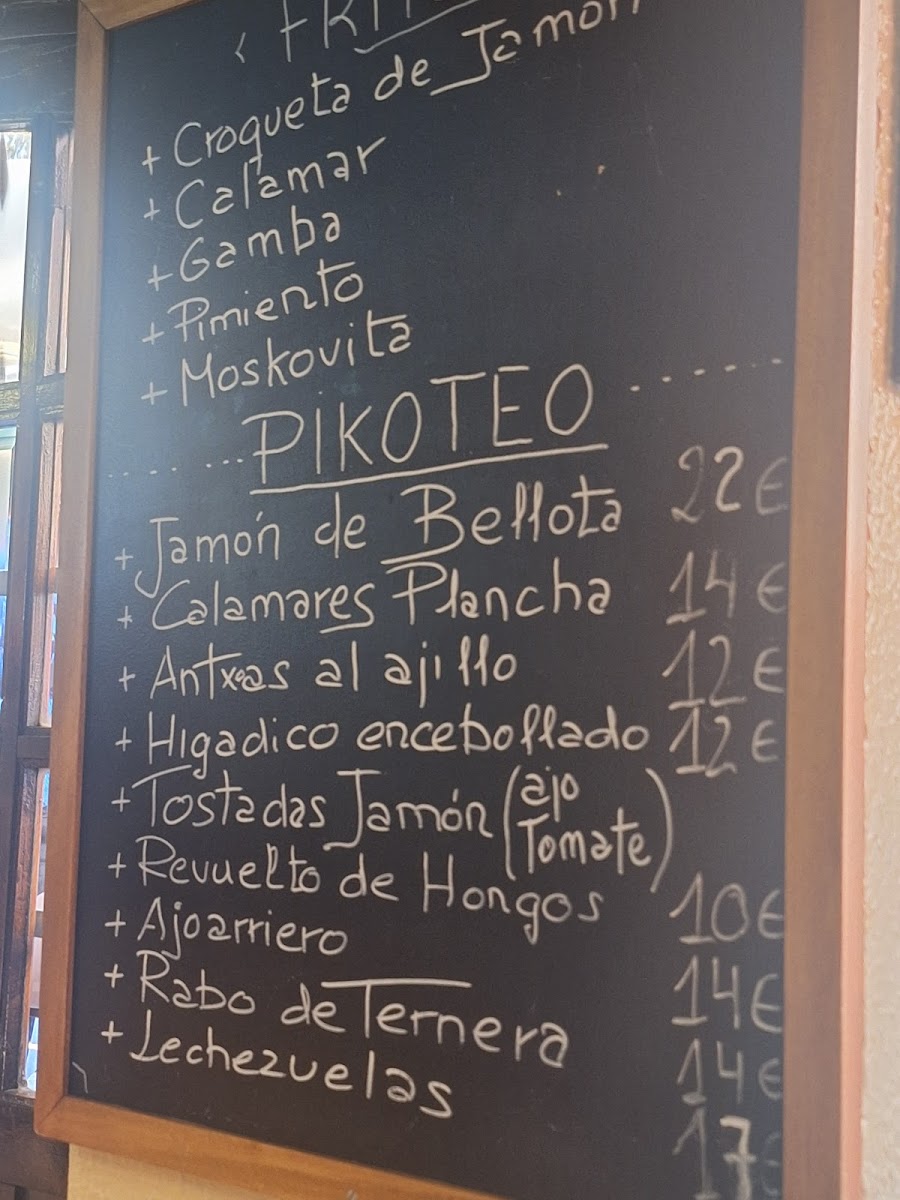 + Croqueta de Jamón
+ Calamar
+ Gamba
+ Pimiento
+ Moskovita
PIKOTEO
+ Jamón de Bellota 22€
+ Calamares Plancha 14€
+ Antxoas al ajillo 12€
+ Higadico encebollado 12€
+ Tostadas Jamón (ajo Tomate)
+ Revuelto de Hongos 10€
+ Ajoarriero 14€
+ Rabo de Ternera 14€
+ Lechezuelas 17€